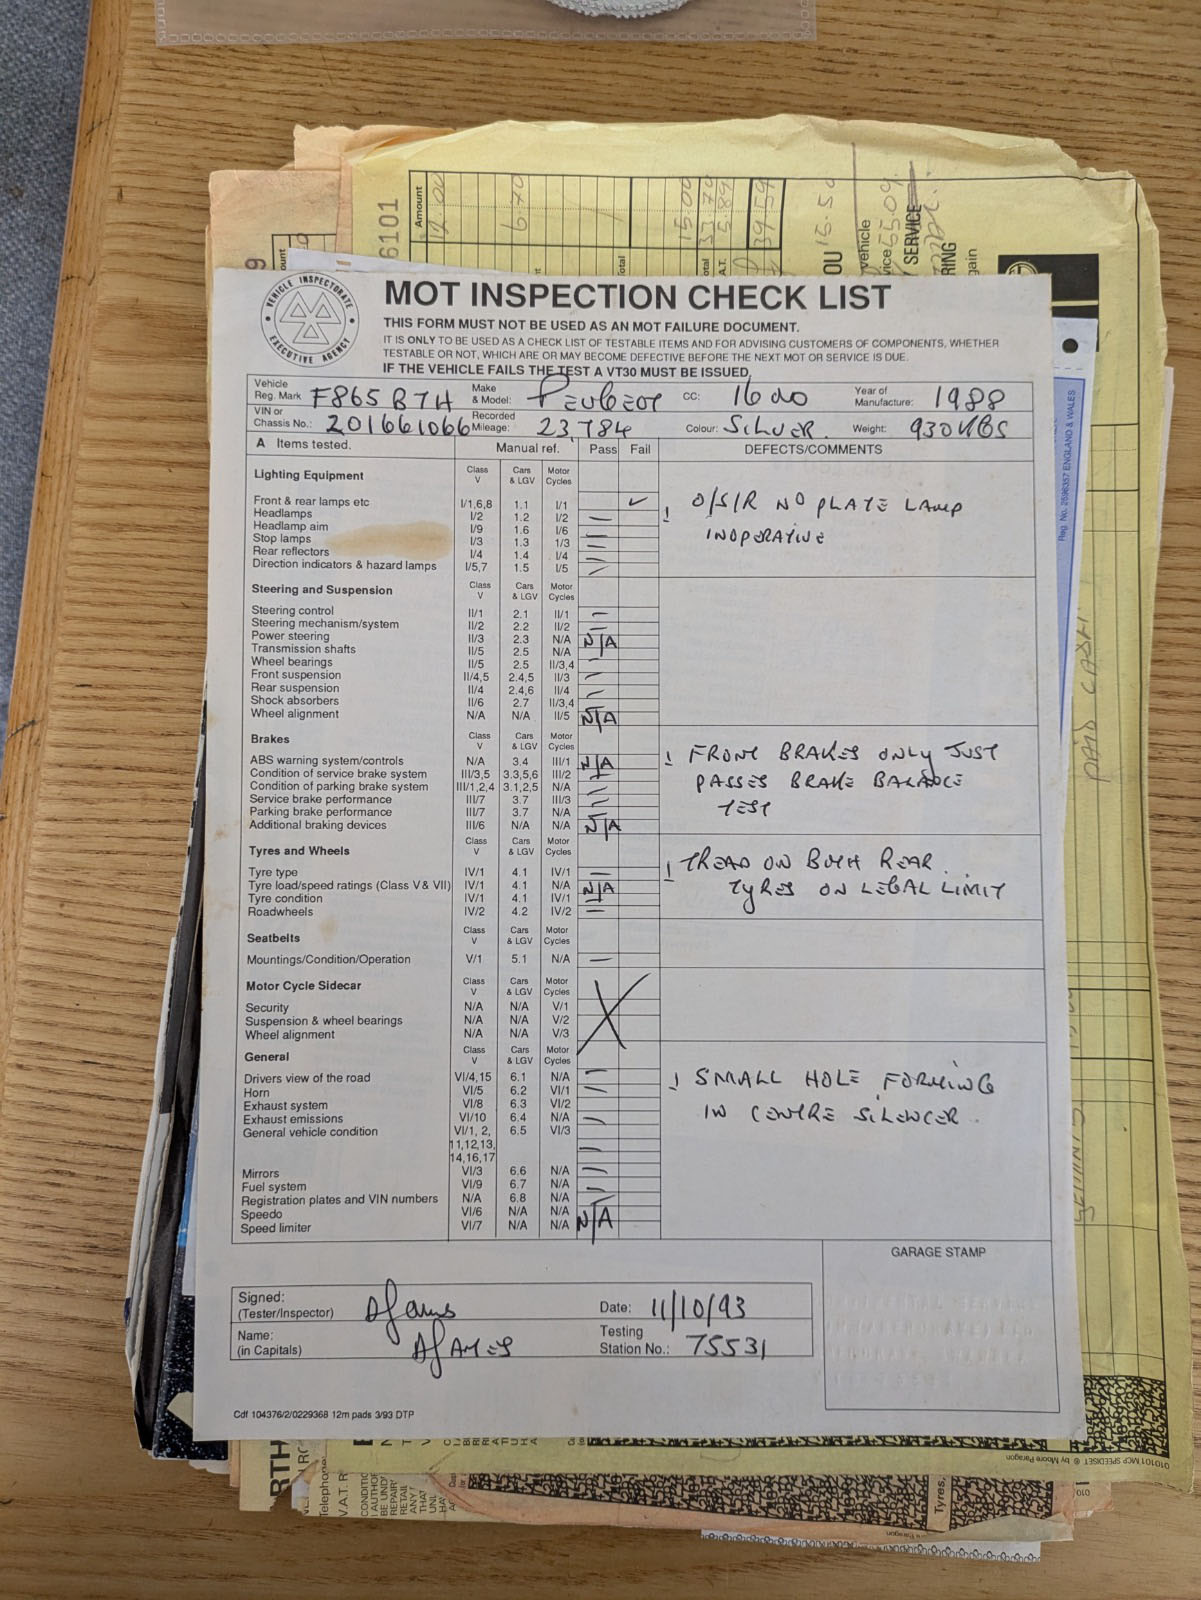 Amount
6101
12.00
6.70
15.00
33.70
5.89
39.59
OU 15.50
vehicle
SERVICE
RING
gain
VEHICLE INSPECTORATE
EXECUTIVE AGENCY
MOT INSPECTION CHECK LIST
THIS FORM MUST NOT BE USED AS AN MOT FAILURE DOCUMENT.
IT IS ONLY TO BE USED AS A CHECK LIST OF TESTABLE ITEMS AND FOR ADVISING CUSTOMERS OF COMPONENTS, WHETHER
TESTABLE OR NOT, WHICH ARE OR MAY BECOME DEFECTIVE BEFORE THE NEXT MOT OR SERVICE IS DUE.
IF THE VEHICLE FAILS THE TEST A VT30 MUST BE ISSUED.
Vehicle Reg. Mark F865 BTH Make & Model: PEUGEOT CC: 1600 Year of Manufacture: 1988
VIN or Chassis No.: 201661066 Recorded Mileage: 23,784 Colour: SILVER. Weight: 930 KGS
A Items tested. Manual ref. Pass Fail DEFECTS/COMMENTS
Lighting Equipment Class V Cars & LGV Motor Cycles
Front & rear lamps etc I/1,6,8 1.1 I/1 ✓ ! O/S/R NO PLATE LAMP
Headlamps I/2 1.2 I/2 –
Headlamp aim I/9 1.6 I/6 – INOPERATIVE
Stop lamps I/3 1.3 1/3 –
Rear reflectors I/4 1.4 I/4 –
Direction indicators & hazard lamps I/5,7 1.5 I/5 –
Steering and Suspension Class V Cars & LGV Motor Cycles
Steering control II/1 2.1 II/1 –
Steering mechanism/system II/2 2.2 II/2 –
Power steering II/3 2.3 N/A N/A
Transmission shafts II/5 2.5 N/A
Wheel bearings II/5 2.5 II/3,4 –
Front suspension II/4,5 2.4,5 II/3 –
Rear suspension II/4 2.4,6 II/4 –
Shock absorbers II/6 2.7 II/3,4 –
Wheel alignment N/A N/A II/5 N/A
Brakes Class V Cars & LGV Motor Cycles
ABS warning system/controls N/A 3.4 III/1 N/A ! FRONT BRAKES ONLY JUST
Condition of service brake system III/3,5 3.3,5,6 III/2 –
Condition of parking brake system III/1,2,4 3.1,2,5 N/A – PASSES BRAKE BALANCE
Service brake performance III/7 3.7 III/3 –
Parking brake performance III/7 3.7 N/A – TEST
Additional braking devices III/6 N/A N/A N/A
Tyres and Wheels Class V Cars & LGV Motor Cycles
Tyre type IV/1 4.1 IV/1 – ! TREAD ON BOTH REAR.
Tyre load/speed ratings (Class V & VII) IV/1 4.1 N/A N/A TYRES ON LEGAL LIMIT
Tyre condition IV/1 4.1 IV/1 –
Roadwheels IV/2 4.2 IV/2 –
Seatbelts Class V Cars & LGV Motor Cycles
Mountings/Condition/Operation V/1 5.1 N/A –
Motor Cycle Sidecar Class V Cars & LGV Motor Cycles
Security N/A N/A V/1
Suspension & wheel bearings N/A N/A V/2
Wheel alignment N/A N/A V/3
General Class V Cars & LGV Motor Cycles
Drivers view of the road VI/4,15 6.1 N/A – ! SMALL HOLE FORMING
Horn VI/5 6.2 VI/1 –
Exhaust system VI/8 6.3 VI/2
Exhaust emissions VI/10 6.4 N/A – IN CENTRE SILENCER.
General vehicle condition VI/1, 2, 6.5 VI/3
11,12,13,
14,16,17
Mirrors VI/3 6.6 N/A –
Fuel system VI/9 6.7 N/A –
Registration plates and VIN numbers N/A 6.8 N/A –
Speedo VI/6 N/A N/A
Speed limiter VI/7 N/A N/A N/A
GARAGE STAMP
Signed: (Tester/Inspector) Date: 11/10/93
Name: (in Capitals) A JAMES Testing Station No.: 75531
Cdf 104376/2/0229368 12m pads 3/93 DTP
Reg. No. 2596357 ENGLAND & WALES
PAID CASH
010101 MCP SPEEDSET ® by Moore Paragon
Telephone
V.A.T. R
Tyres,